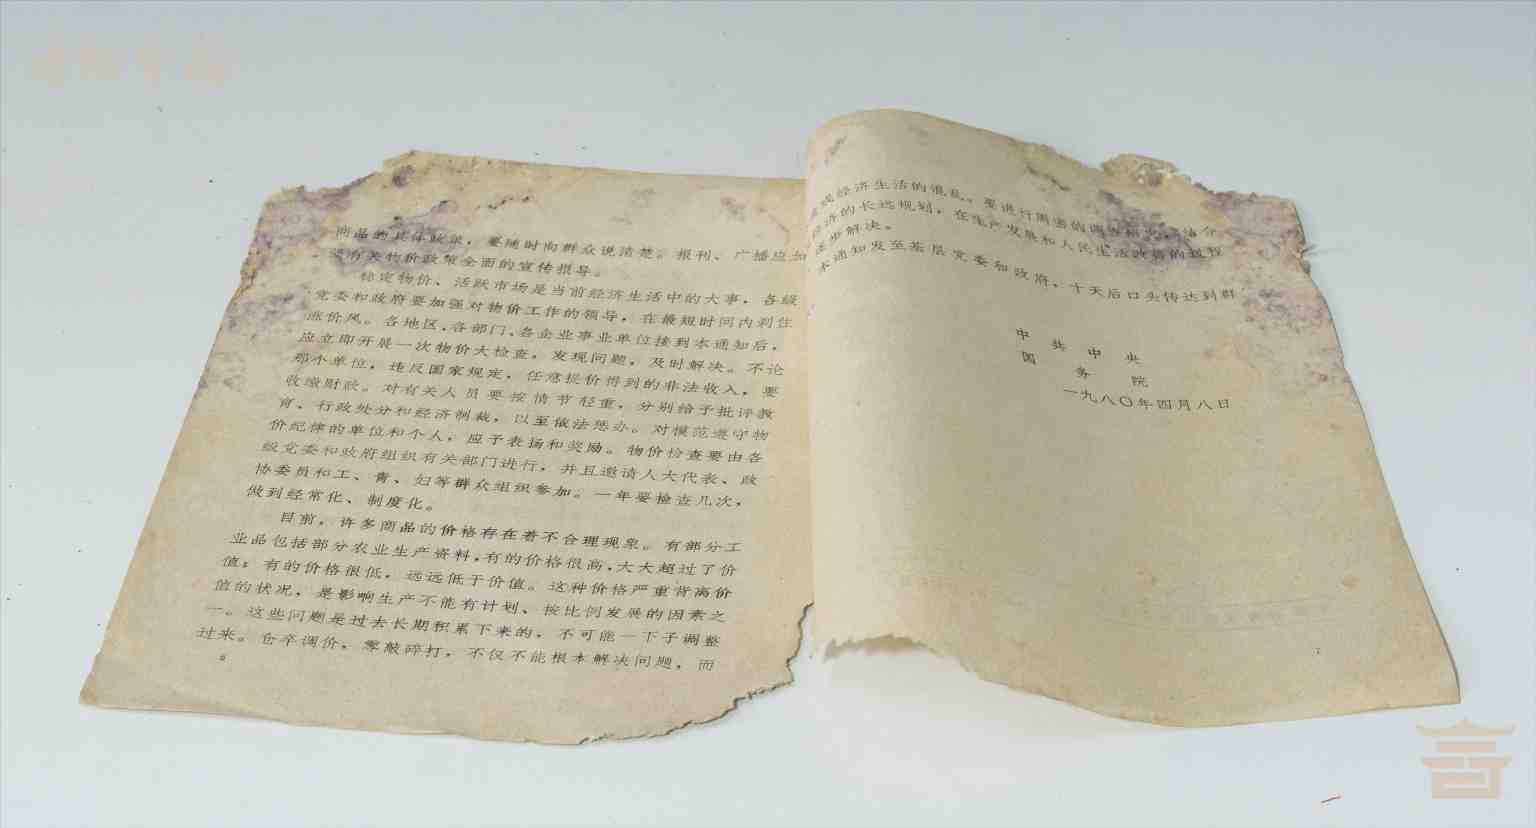 商品的具体政策，要随时向群众说清楚。报刊、广播应加
有关物价政策全面的宣传报导。
稳定物价、活跃市场是当前经济生活中的大事，各级
党委和政府要加强对物价工作的领导，在最短时间内刹住
涨价风。各地区、各部门、各企业事业单位接到本通知后，
应立即开展一次物价大检查，发现问题，及时解决。不论
那个单位，违反国家规定，任意提价得到的非法收入，要
收缴财政。对有关人员要按情节轻重，分别给予批评教
育、行政处分和经济制裁，以至依法惩办。对模范遵守物
价纪律的单位和个人，应予表扬和奖励。物价检查要由各
级党委和政府组织有关部门进行，并且邀请人大代表、政
协委员和工、青、妇等群众组织参加。一年要检查几次，
做到经常化、制度化。
目前，许多商品的价格存在着不合理现象。有部分工
业品包括部分农业生产资料，有的价格很高，大大超过了价
值；有的价格很低，远远低于价值。这种价格严重背离价
值的状况，是影响生产不能有计划、按比例发展的因素之
一。这些问题是过去长期积累下来的，不可能一下子调整
过来。仓卒调价，零敲碎打，不仅不能根本解决问题，而
8
经济生活的混乱。要进行周密的调查
经济的长远规划，在生产发展和人民生活改善的过程
逐步解决。
本通知发至基层党委和政府，十天后口头传达到群
中共中央
国务院
一九八〇年四月八日